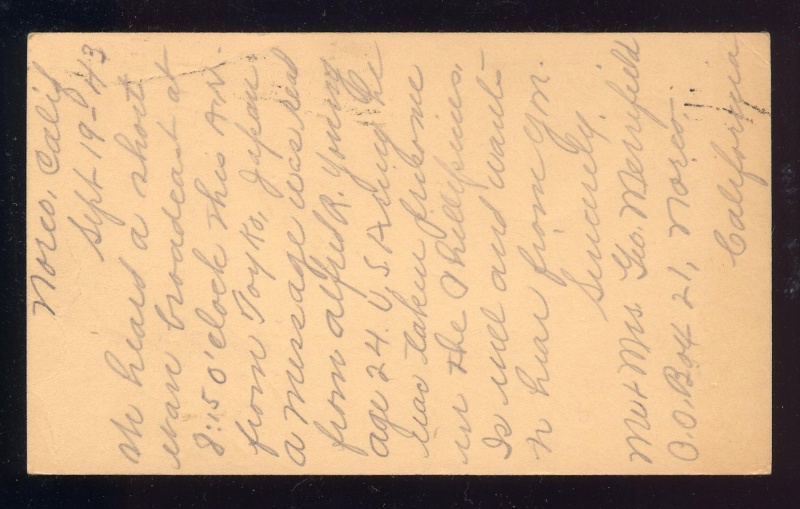 Norco, Calif
Sept-19-43
We heard a short
wave broadcast at
8:15 O'clock this A.M.
from Toyko, Japan
a message was read
from Alfred R. Young
age 24 U.S Army he
was taken prisone
in the Phillipines.
Is well and wants
to hear from you.
Sincerely.
Mr & Mrs. Geo. Merrifield
P.O. Box 21, Norco.
California